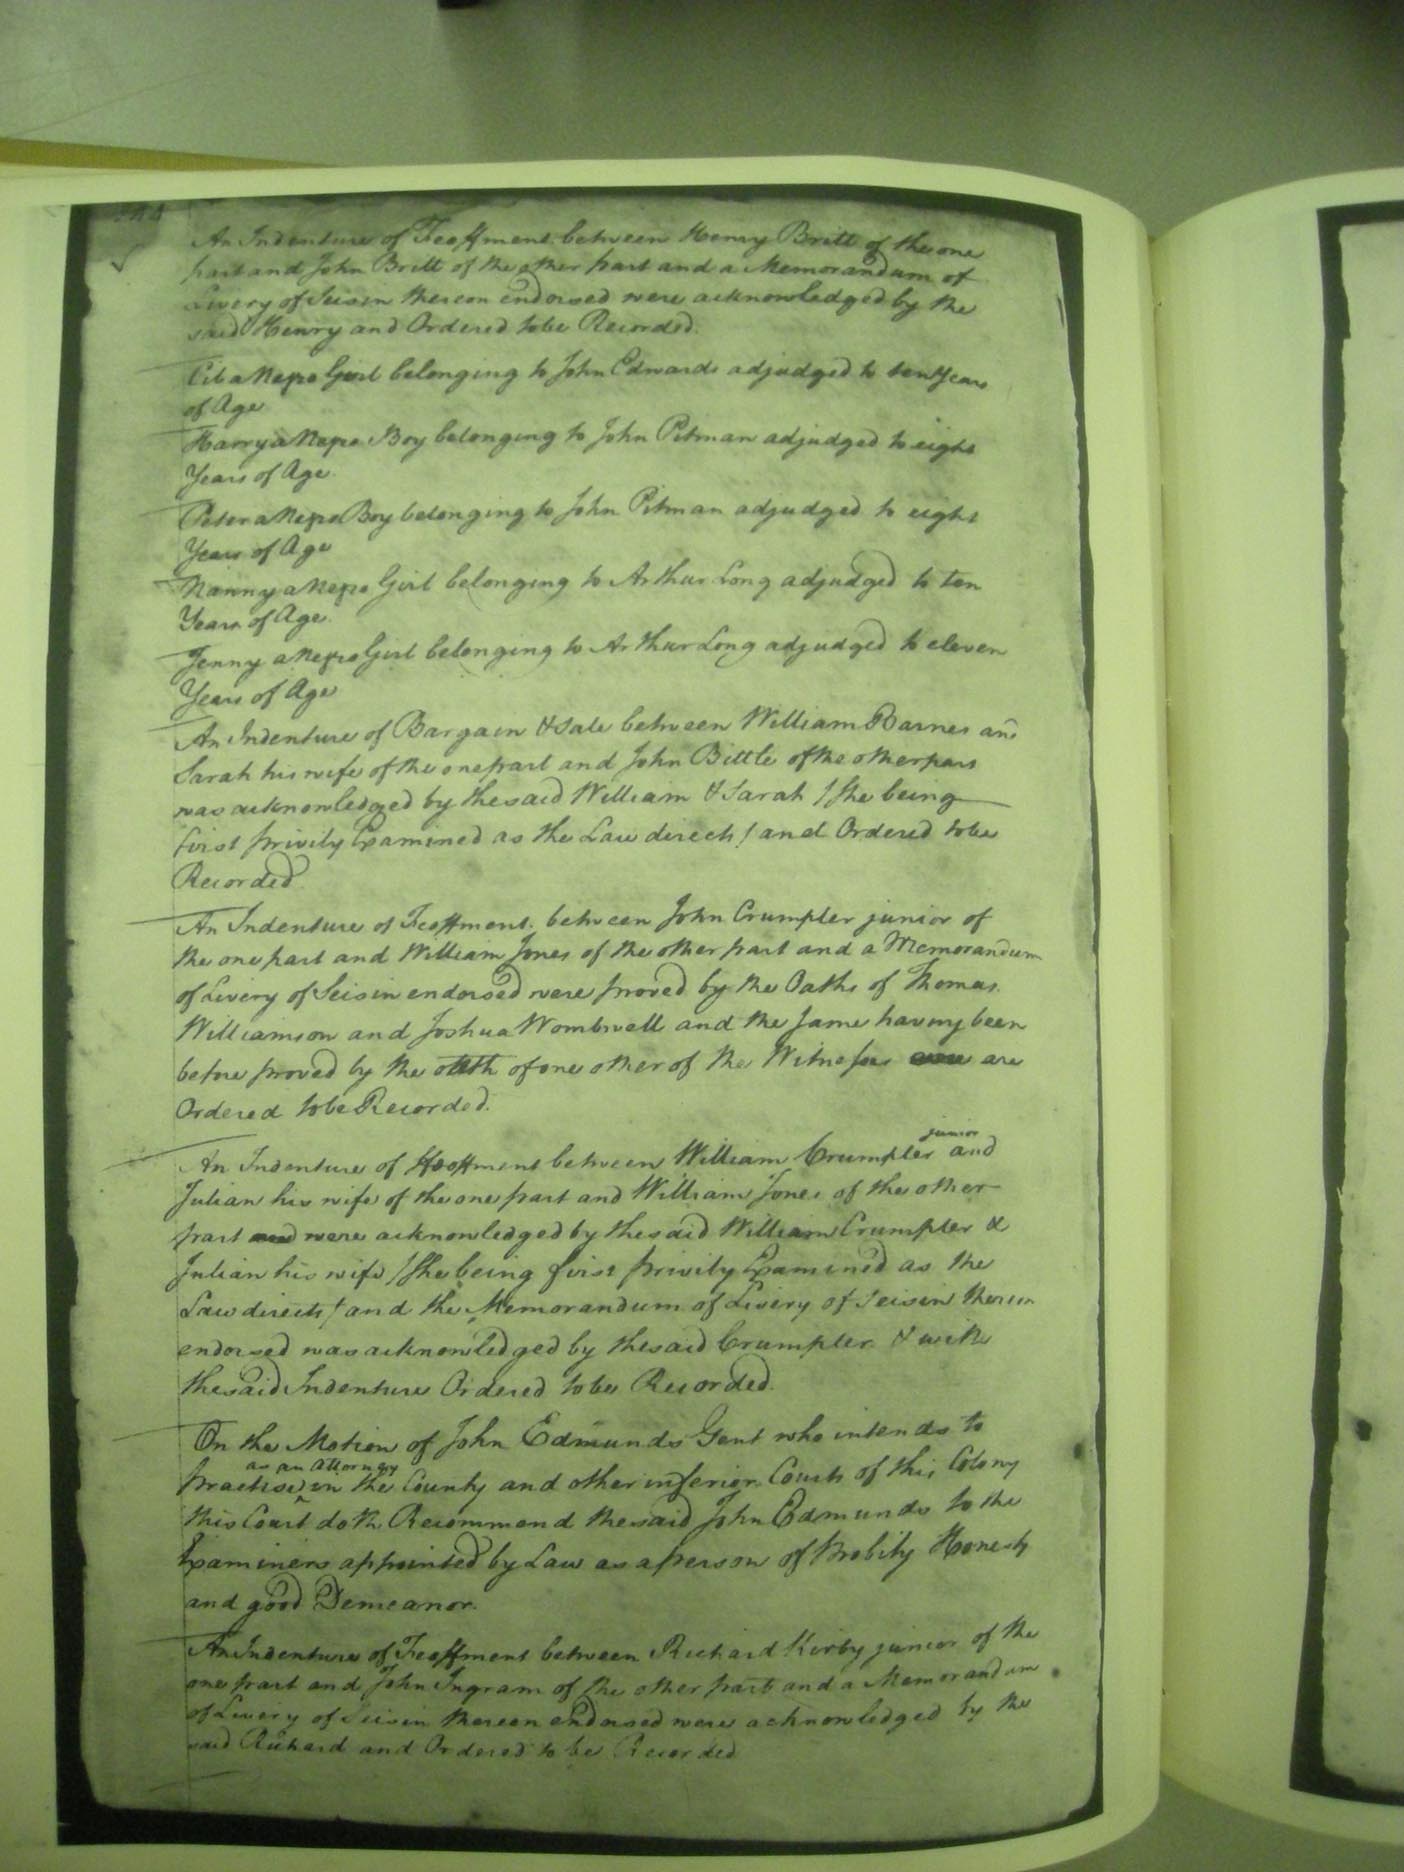 An Indenture of Feoffment between Henry Britt of the one
part and John Britt of the other part and a Memorandum of
Livery of Seisin thereon endorsed were acknowledged by the
said Henry and Ordered to be Recorded.
a Negro Girl belonging to John Edwards adjudged to ten Years
of Age
Harry a Negro Boy belonging to John Pitman adjudged to eight
Years of Age.
Peter a Negro Boy belonging to John Pitman adjudged to eight
Years of Age
Nanny a Negro Girl belonging to Arthur Long adjudged to ten
Years of Age.
Jenny a Negro Girl belonging to Arthur Long adjudged to eleven
Years of Age
An Indenture of Bargain & Sale between William Barnes and
Sarah his wife of the one part and John Bittle of the other part
was acknowledged by the said William & Sarah / She being
first privily Examined as the Law directs / and Ordered to be
Recorded
An Indenture of Feoffment between John Crumpler junior of
the one part and William Jones of the other part and a Memorandum
of Livery of Seisin endorsed were proved by the Oaths of Thomas
Williamson and Joshua Wombwell and the same having been
before proved by the oath of one other of the Witnesses are
Ordered to be Recorded.
junior
An Indenture of Feoffment between William Crumpler and
Julian his wife of the one part and William Jones of the other
part and were acknowledged by the said William Crumpler &
Julian his wife / She being first privily Examined as the
Law directs / and the Memorandum of Livery of Seisin thereon
endorsed was acknowledged by the said Crumpler & with
the said Indenture Ordered to be Recorded.
On the Motion of John Edmunds Gent who intends to
as an Attorney
practise in the County and other inferior Courts of this Colony
this Court doth Recommend the said John Edmunds to the
Examiners appointed by Law as a person of Probity Honesty
and good Demeanor.
An Indenture of Feoffment between Richard Kirby junior of the
one part and John Ingram of the other part and a Memorandum
of Livery of Seisin thereon endorsed were acknowledged by the
said Richard and Ordered to be Recorded